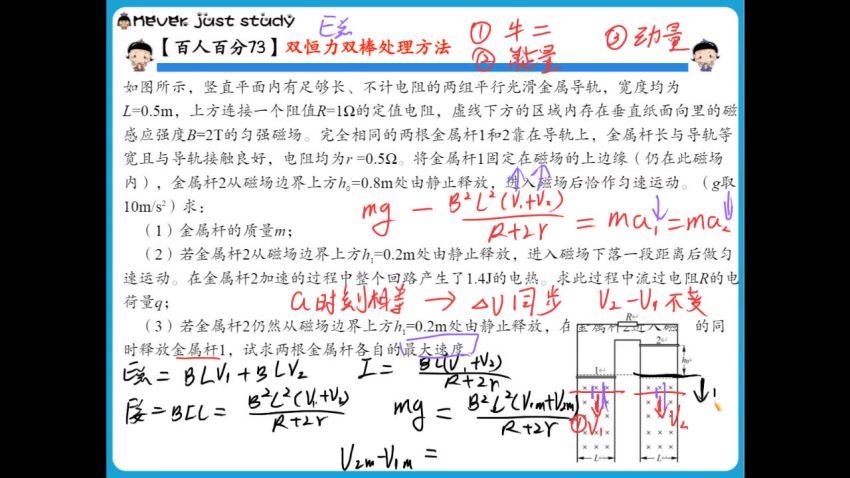 Never just study
E总
① 牛二
③ 动量
【百人百分73】双恒力双棒处理方法
② 能量
如图所示，竖直平面内有足够长、不计电阻的两组平行光滑金属导轨，宽度均为
L=0.5m，上方连接一个阻值R=1Ω的定值电阻，虚线下方的区域内存在垂直纸面向里的磁
感应强度B=2T的匀强磁场。完全相同的两根金属杆1和2靠在导轨上，金属杆长与导轨等
宽且与导轨接触良好，电阻均为r =0.5Ω。将金属杆1固定在磁场的上边缘（仍在此磁场
内），金属杆2从磁场边界上方h₀=0.8m处由静止释放，进入磁场后恰作匀速运动。（g取
10m/s²）求：
mg - B²L²(V₁+V₂)/(R+2r) = ma₁ = ma₂
（1）金属杆的质量m；
（2）若金属杆2从磁场边界上方h₁=0.2m处由静止释放，进入磁场下落一段距离后做匀
速运动。在金属杆2加速的过程中整个回路产生了1.4J的电热。求此过程中流过电阻R的电
荷量q；
a时刻相等 → △V同步 V₂-V₁不变
（3）若金属杆2仍然从磁场边界上方h₁=0.2m处由静止释放，在金属杆2进入磁 的同
时释放金属杆1，试求两根金属杆各自的最大速度。
E总 = BLV₁+BLV₂ I = BL(V₁+V₂)/(R+2r)
F安 = BIL = B²L²(V₁+V₂)/(R+2r) mg = B²L²(V₁m+V₂m)/(R+2r)
V₂m-V₁m =
R
2
h₀
1
① V₁ V₂
L L